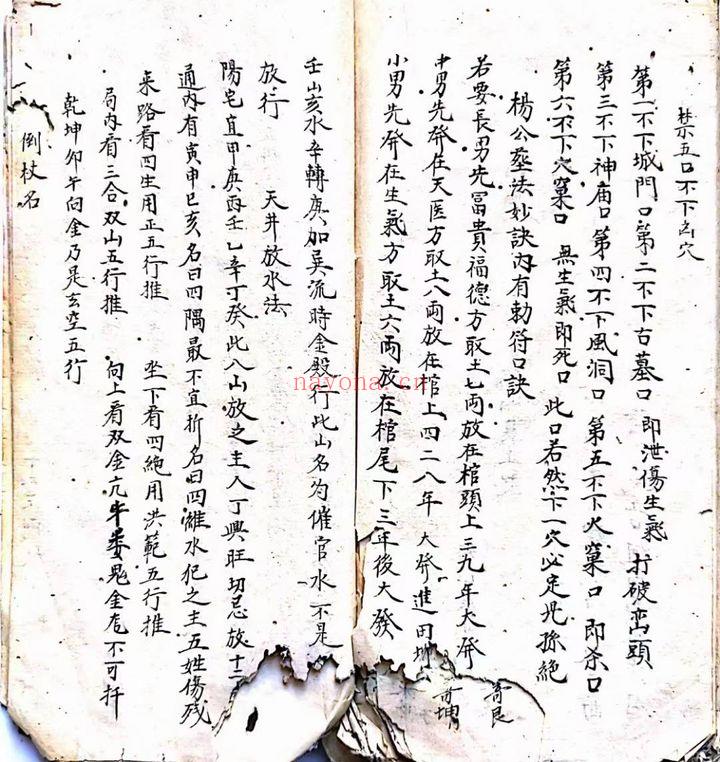 禁五口不下凶穴
第一不下城門口第二不下古墓口 即泄傷生氣 打破巒頭
第三不下神庙口第四不下風洞口 第五不下火窠口 即杀口
第六不下穴窠口 無生氣即死口 此口若然下一穴必定児孫絶
楊公塟法妙訣内有勅符口訣
若要長男先冨貴福德方取土七両放在棺頭上三九年大發
中男先發在天医方取土八両放在棺上四二八年 大發進田
小男先發在生氣方取土六両放在棺尾下三年後大發
寄艮
寄坤
壬山亥水辛轉庚加巽流時金殿行此山名为催官水不是
放行 天井放水法
陽宅宜甲庚丙壬乙辛丁癸此八山放之主人丁興旺切忌放十二
通内有寅申巳亥名曰四隅最不宜折名曰四離水犯之主五姓傷残
来路看四生用正五行推 坐下看四絶用洪範五行推
局内看三合双山五行推 向上看双金亢牛婁鬼金危不可扦
乾坤卯午向金乃是玄空五行
倒杖名
nayona.cn